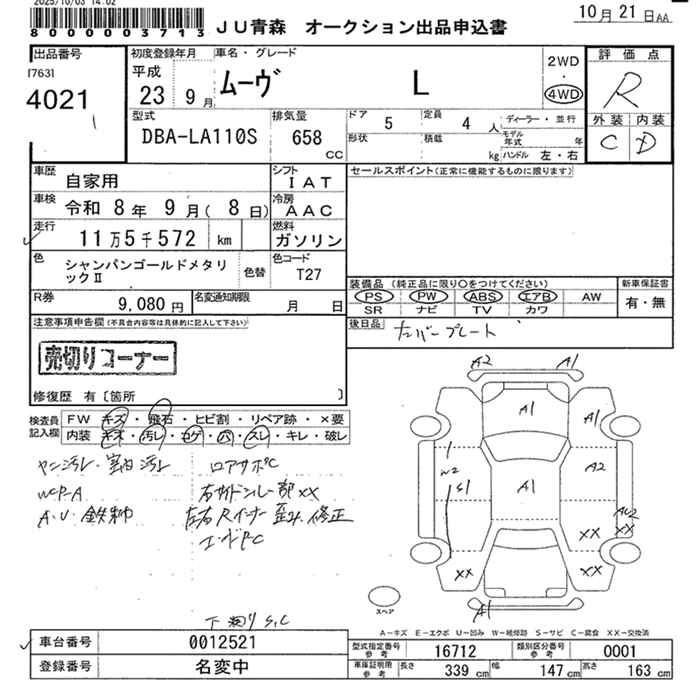 2025/10/03 14:02
8000003713
JU青森 オークション出品申込書
10月21日AA
出品番号
17631
4021
初度登録年月
平成
23 9月
車名・グレード
ムーヴ L
2WD
・
4WD
評価点
R
外装 内装
C D
型式
DBA-LA110S
排気量
658
cc
ドア
5
定員
4 人
形状
積載
kg
ディーラー・並行
モデル年式 年
ハンドル 左・右
車歴
自家用
シフト
IAT
セールスポイント(正常に機能するものに限ります)
車検
令和 8年 9月( 8日)
冷房
AAC
走行
11万5千572 km
燃料
ガソリン
色
シャンパンゴールドメタリックⅡ
色替
色コード
T27
装備品 (純正品に限り○をつけてください)
PS PW ABS エアB AW
SR ナビ TV カワ
新車保証書
有・無
R券
9,080円
名変通知期限
月 日
後日品
ナンバープレート
注意事項申告欄(不具合内容等は具体的に記入して下さい)
売切りコーナー
修復歴 有〔箇所 〕
検査員
記入欄
FW キズ・飛石・ヒビ割・リペア跡・×要
内装 キズ・汚レ・コゲ・穴・スレ・キレ・破レ
ヤニ汚レ・室内汚レ
ロアサポC
WCP-A
右サイドシル一部XX
A.U.鉄粉
左右Rインナー歪み.修正
エンドPC
下廻りS,C
A2 A1
A1
A1
W2
A2
S1
A1
XX
XX
XX
XX
A1
スペア
A-キズ E-エクボ U-凹み W-補修跡 S-サビ C-腐食 XX-交換済
車台番号
0012521
型式指定番号
参考
16712
類別区分番号
参考
0001
登録番号
名変中
車庫証明用
参考
長さ 339 cm
幅 147 cm
高さ 163 cm